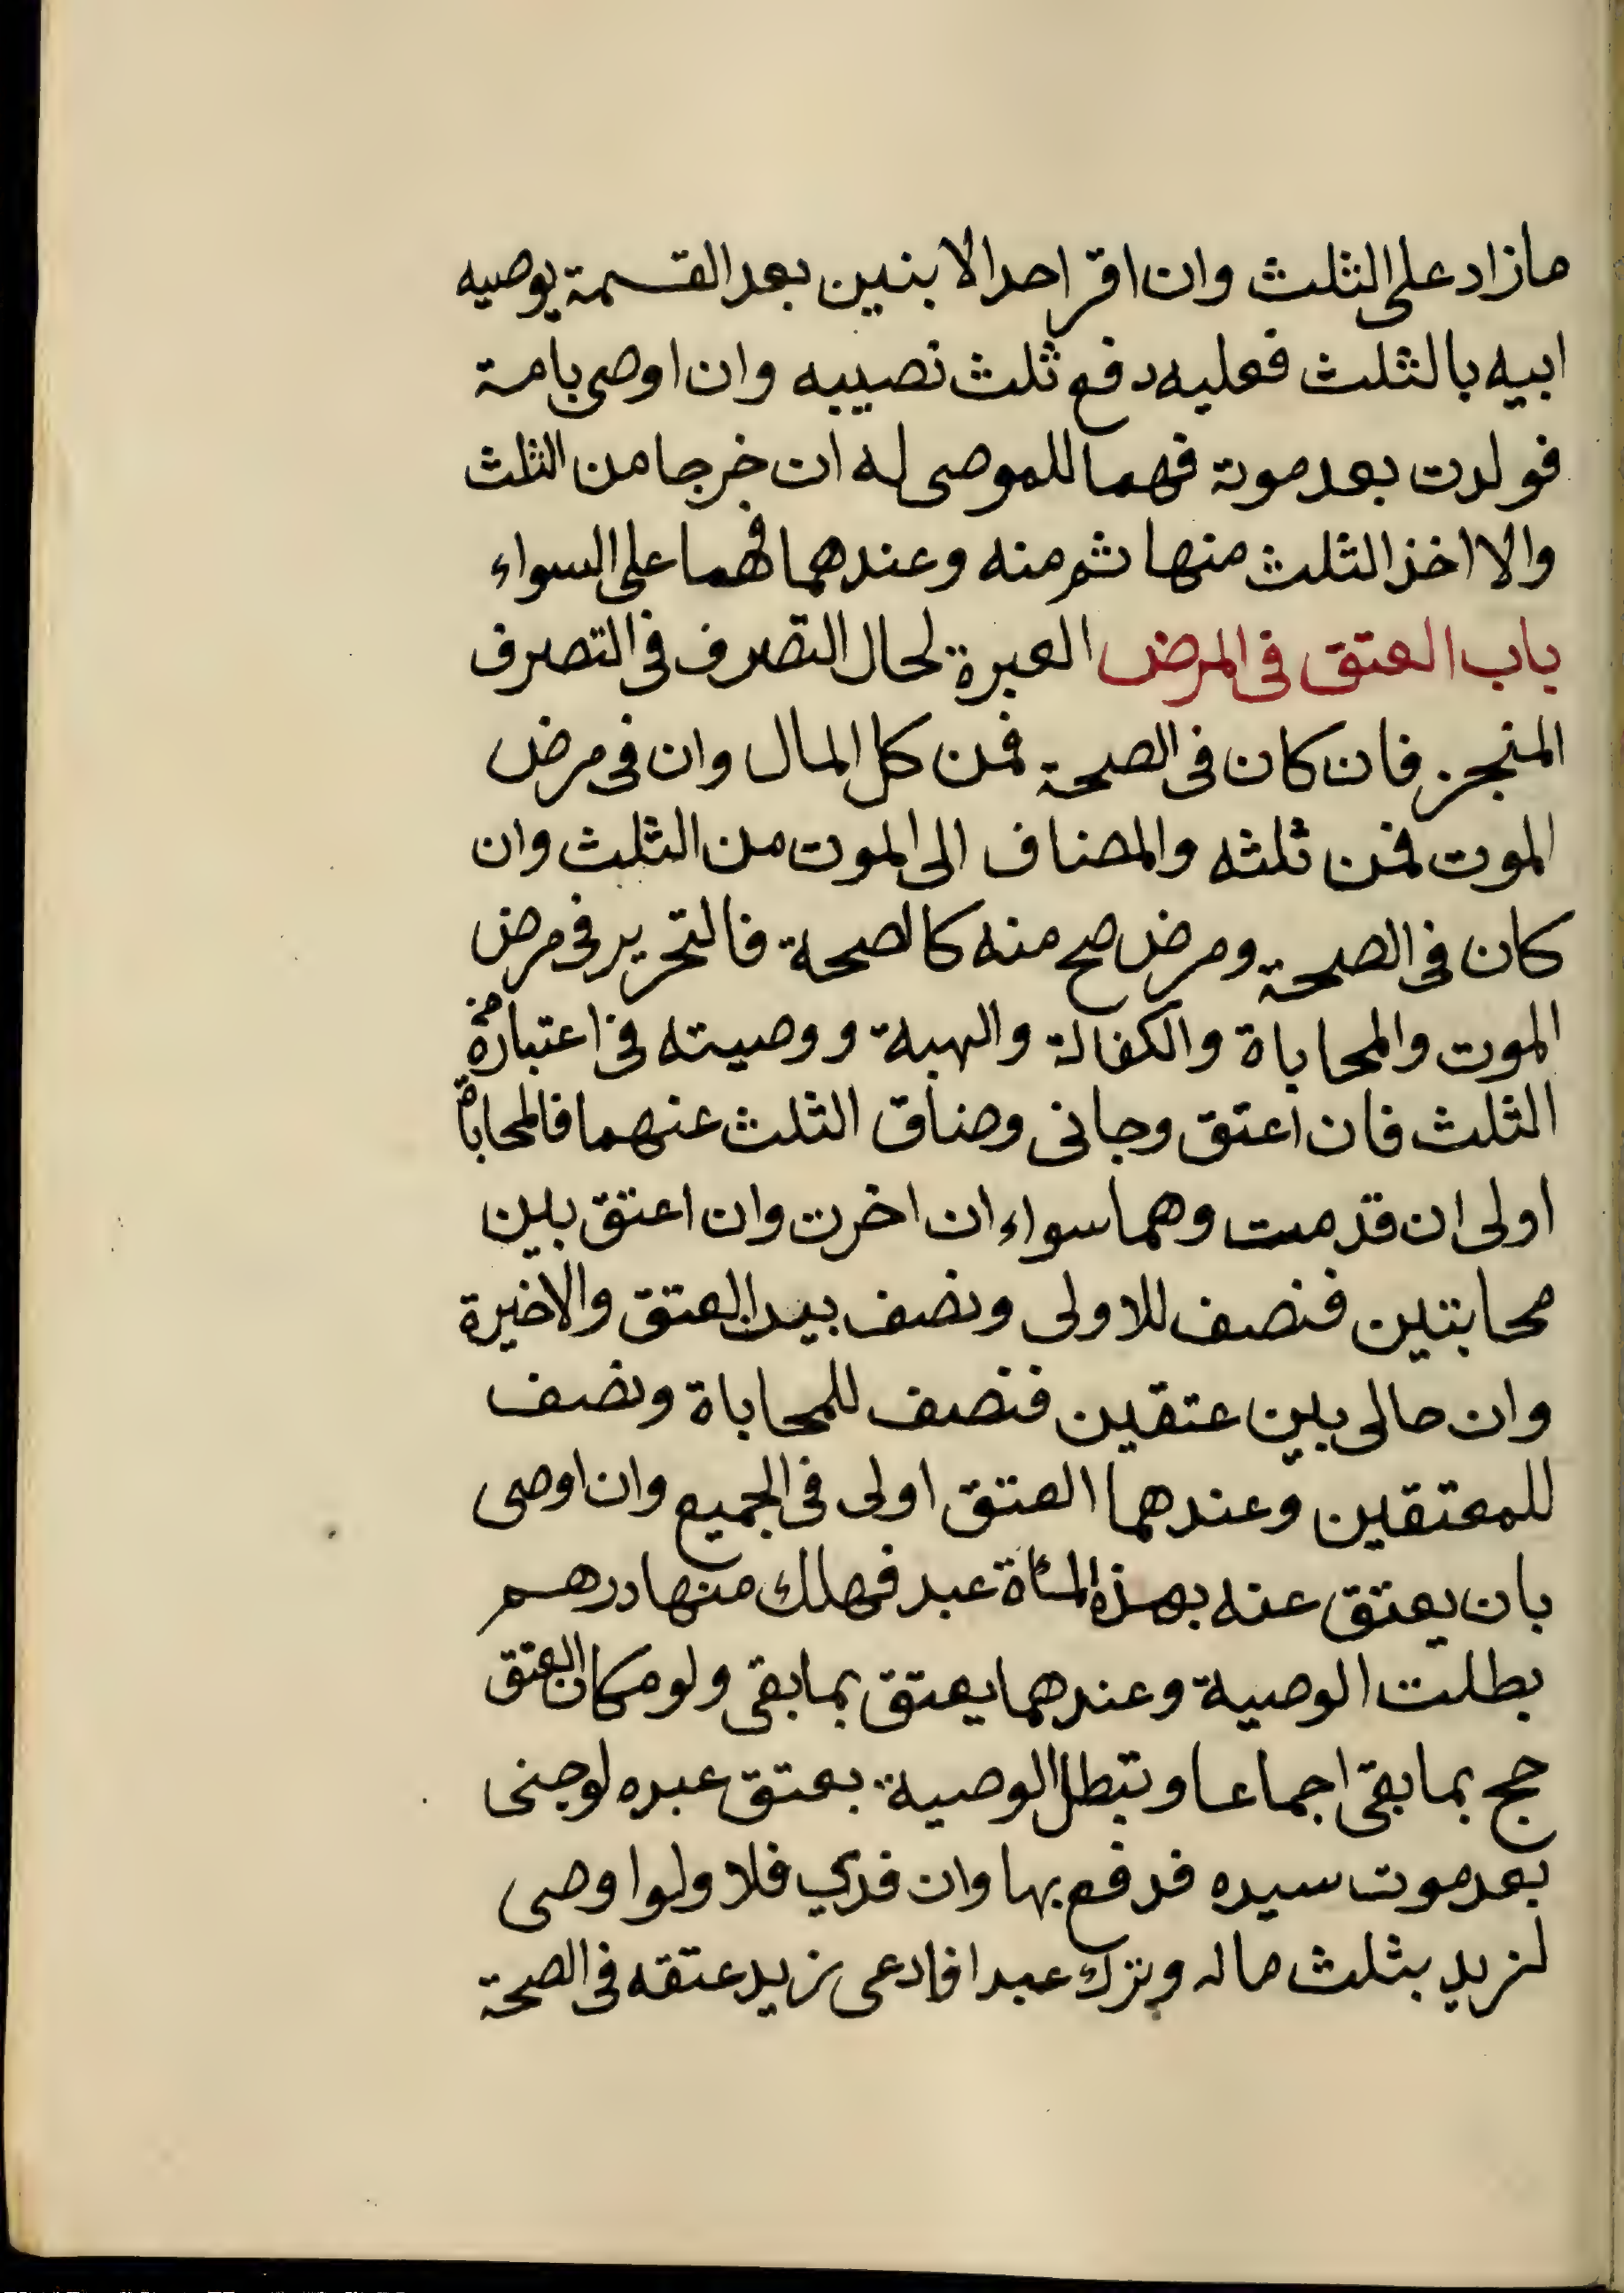 مازاد على الثلث وان اقر احد الابنين بعد القسمة بوصيه
ابيه بالثلث فعليه دفع ثلث نصيبه وان اوصى بامة
فولدت بعد موته فهما للموصى له ان خرجا من الثلث
والا اخذ الثلث منها ثم منه وعندهما فهما على السواء
باب العتق فى المرض العبرة لحال التصرف فى التصرف
المنجز فان كان فى الصحة فمن كل المال وان فى مرض
الموت فمن ثلثه والمضاف الى الموت من الثلث وان
كان فى الصحة ومرض صح منه كالصحة فالتحرير فى مرض
الموت والمحاباة والكفالة والهبة ووصيته فى اعتباره من
الثلث فان اعتق وحابى وضاق الثلث عنهما فالمحاباة
اولى ان قدمت وهما سواء ان اخرت وان اعتق بين
محابتين فنصف للاولى ونصف بين العتق والاخيرة
وان حابى بين عتقين فنصف للمحاباة ونصف
للمعتقين وعندهما العتق اولى فى الجميع وان اوصى
بان يعتق عنه بهذه المائة عبد فهلك منها درهم
بطلت الوصية وعندهما يعتق بما بقى ولو مكان العتق
حج بما بقى اجماعا وتبطل الوصية بعتق عبده لو جنى
بعد موت سيده فدفع بها وان فدي فلا ولو اوصى
لزيد بثلث ماله وترك عبدا فادعى زيد عتقه فى الصحة